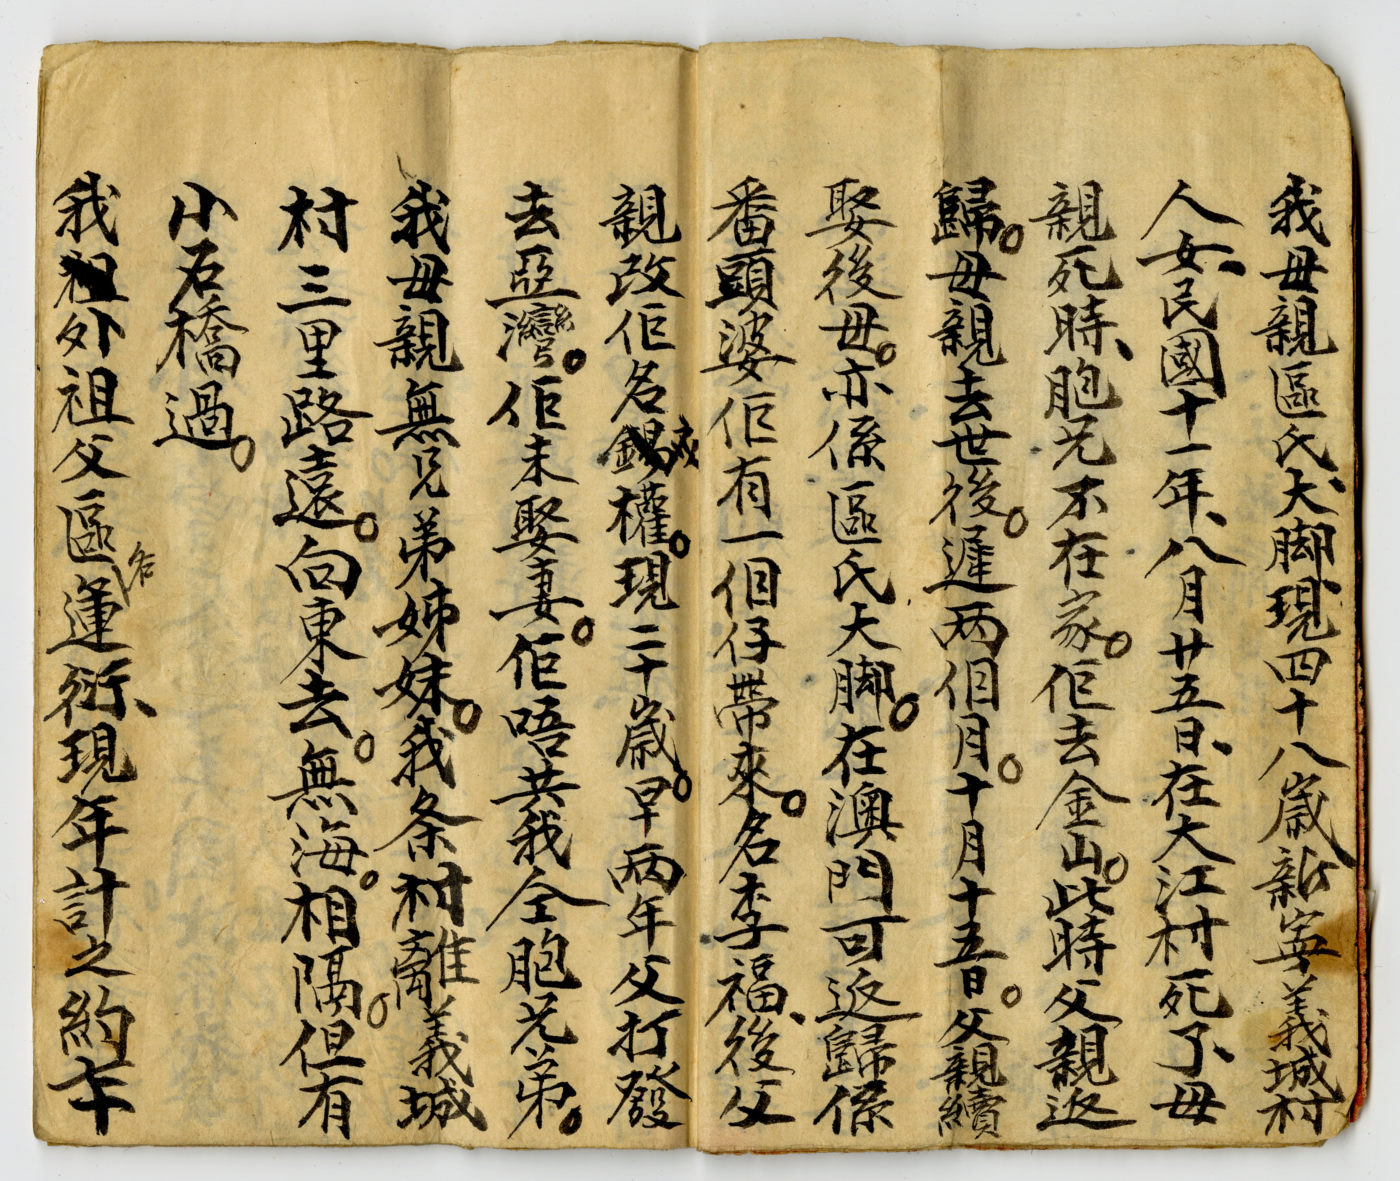 我母親區氏、大脚、現四十八歲新寧義城村
人女、民國十一年、八月廿五日、在大江村死了、母
親死時、胞兄不在家。佢去金山。此時父親返
歸。母親去世後。遲两個月。十月十五日。父親續
娶後母。亦係區氏大脚。在澳門可返歸係
番頭婆佢有一個仔帶來。名李福、後父
親改佢名錫權。現二十歲。早两年父打發
去亞灣。佢未娶妻。佢唔共我仝胞兄弟。
我母親無兄弟姊妹。我条村離義城
村三里路遠。向東去。無海。相隔。但有
小石橋過。
我外祖父區名運衍、現年計之約